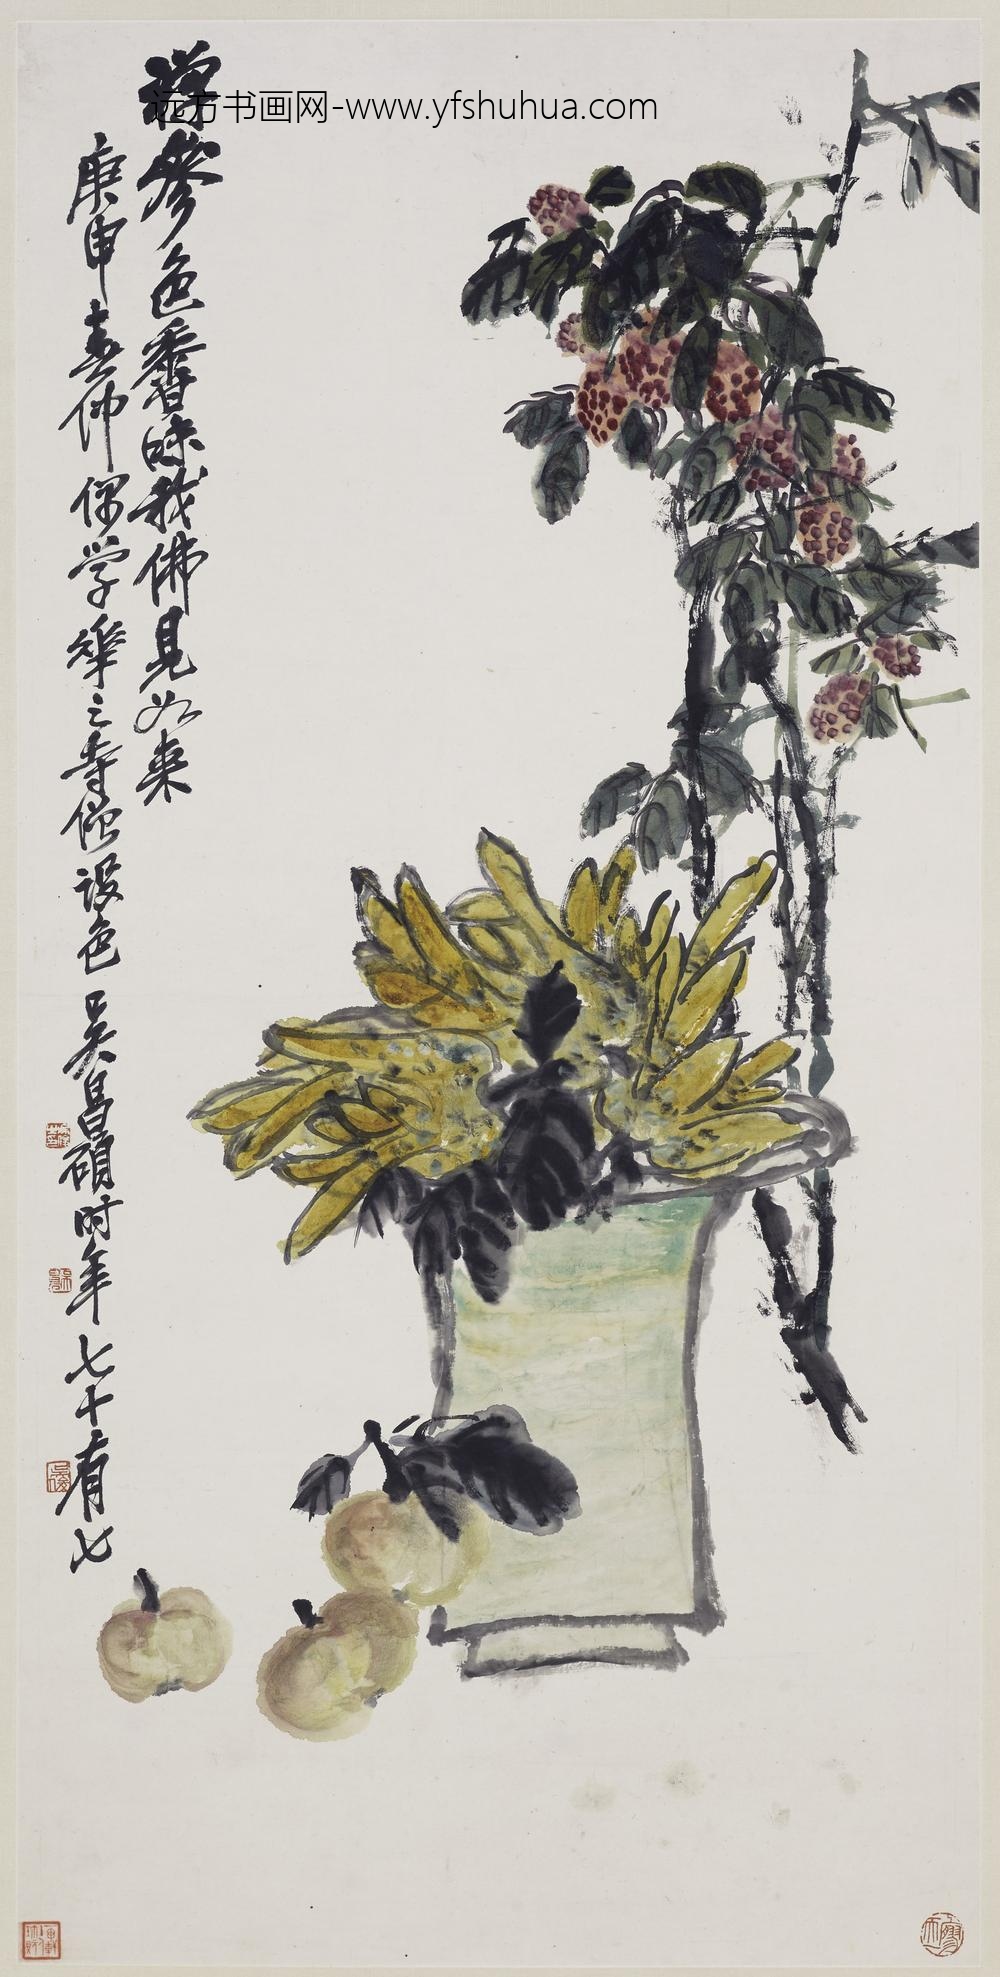 远方书画网-www.yfshuhua.com
禅参色香味我佛见如来
庚申春仲偶学华之寺僧设色吴昌硕时年七十有七